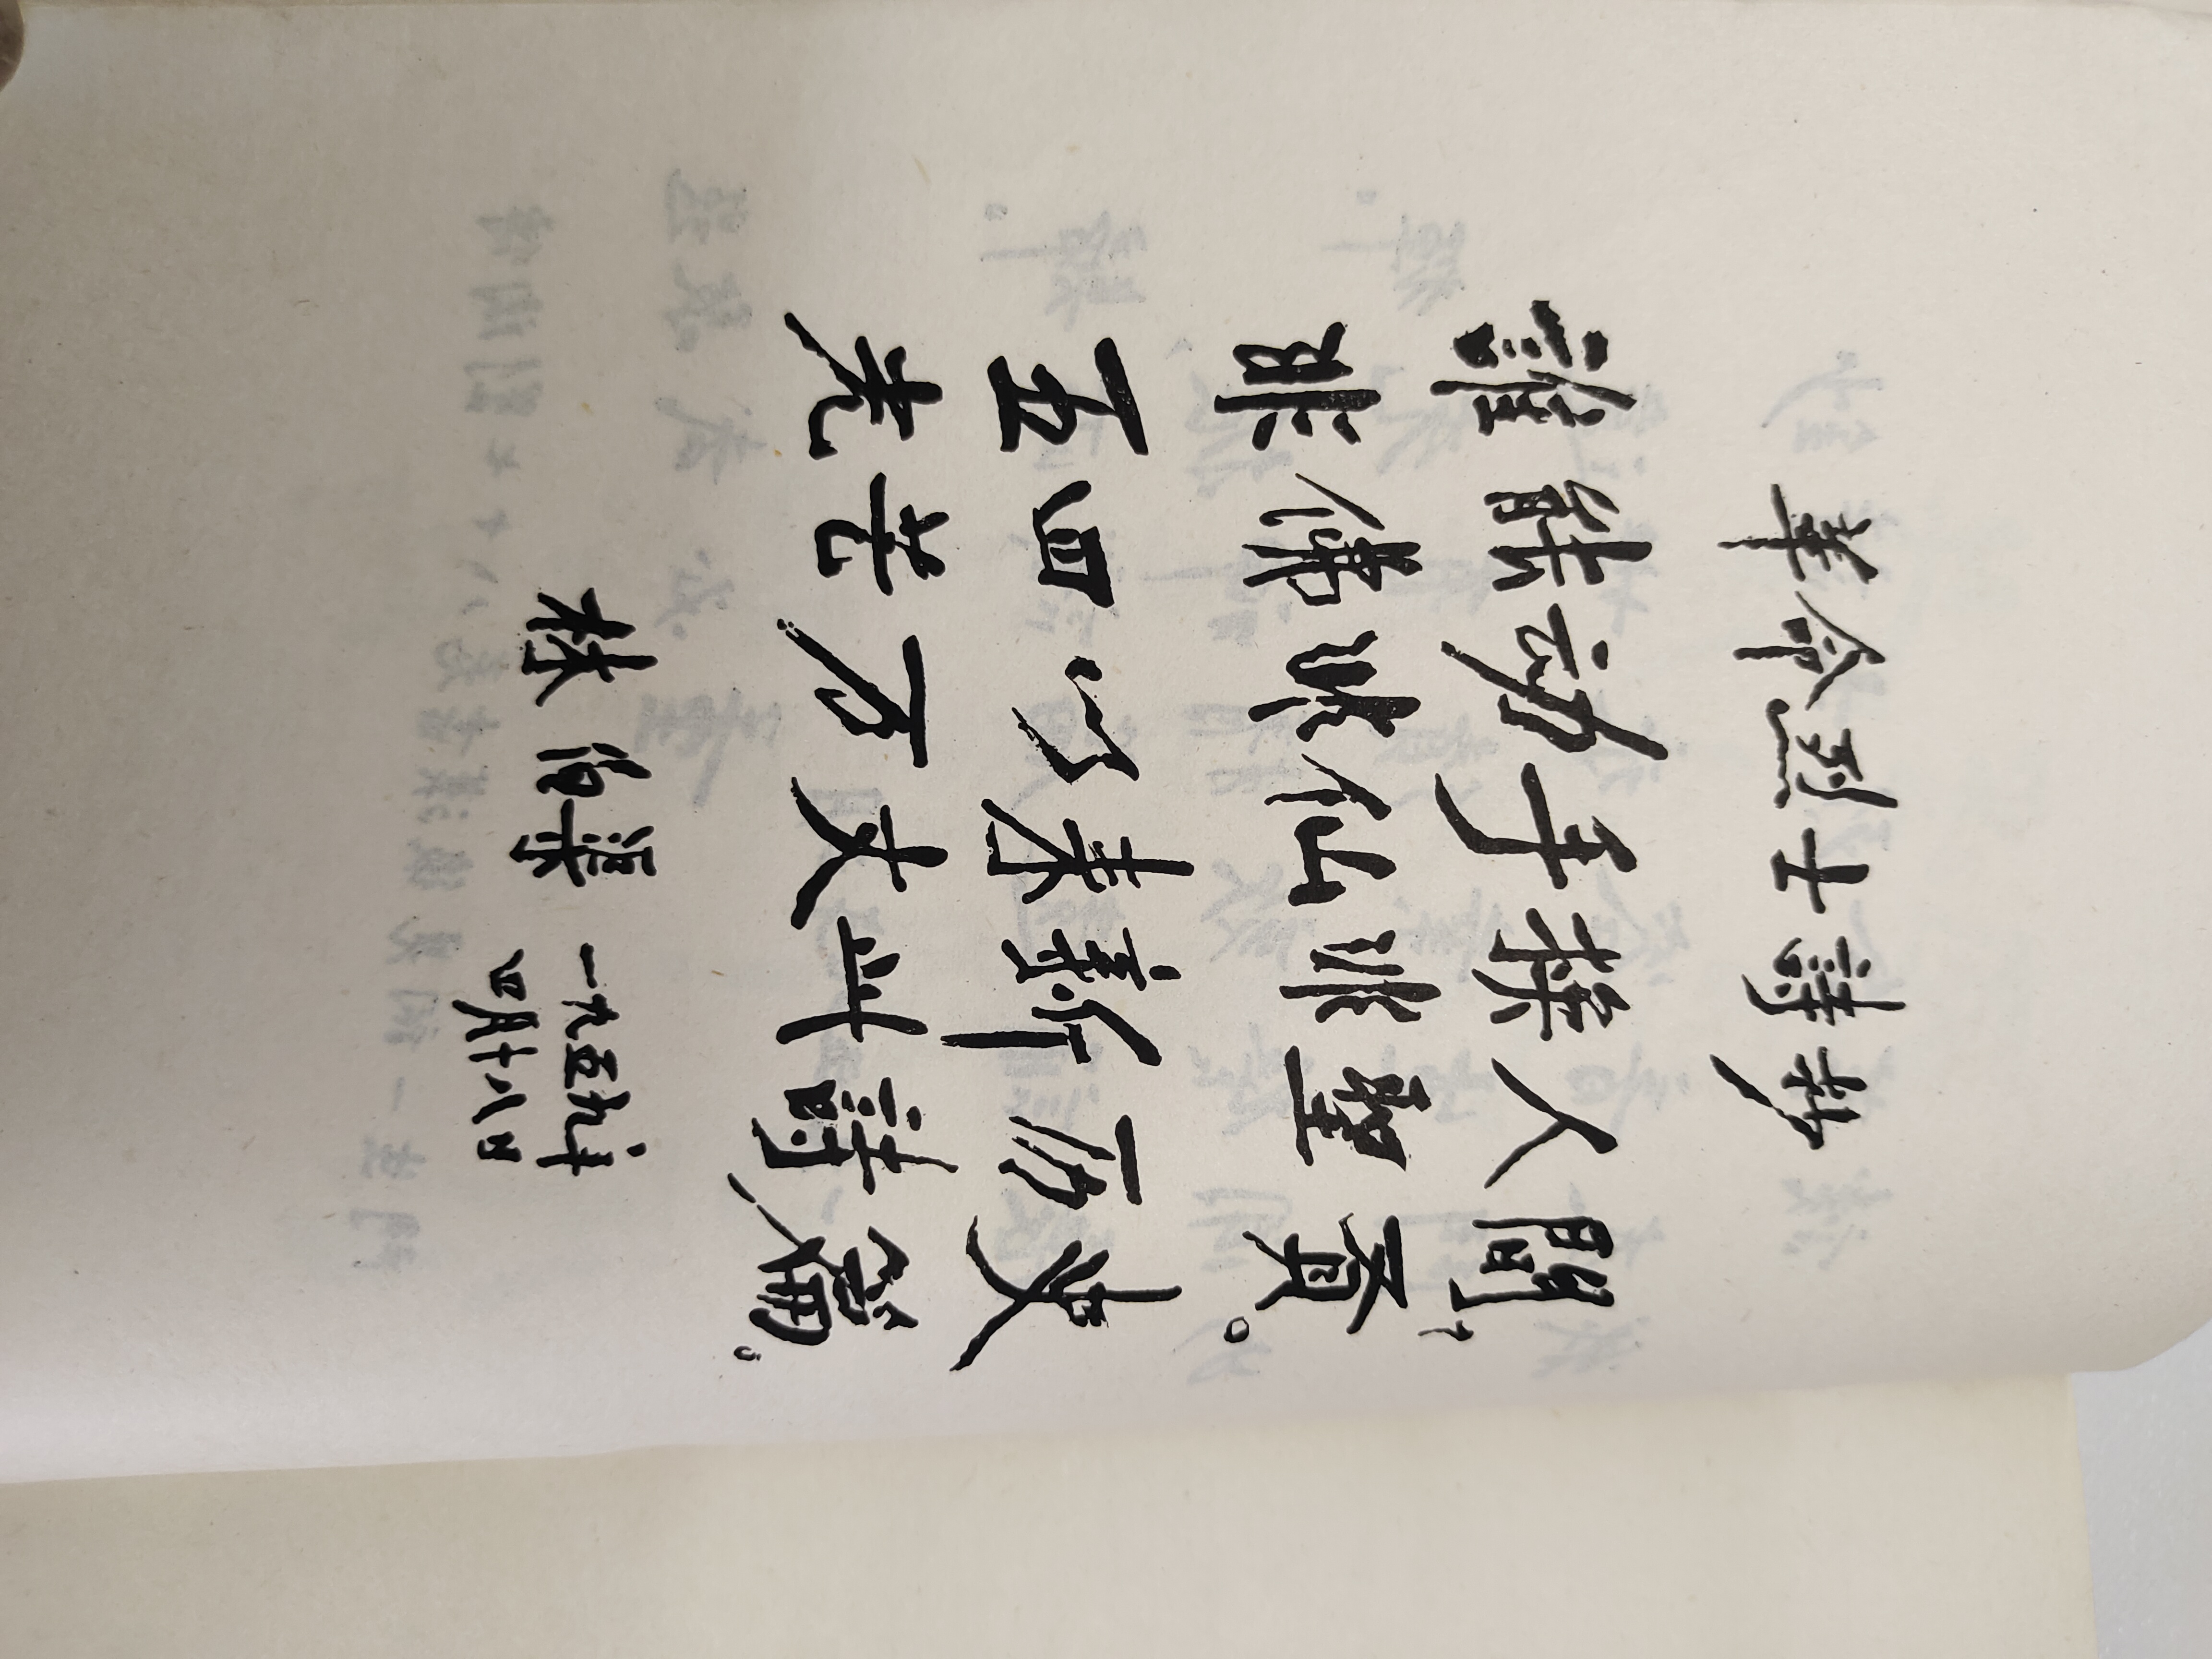 革命烈士詩抄
誰能动手人間，
非佛非仙非聖賢。
五四以来新历史
光芒万丈此詩篇。
林伯渠
一九五九年
四月十八日